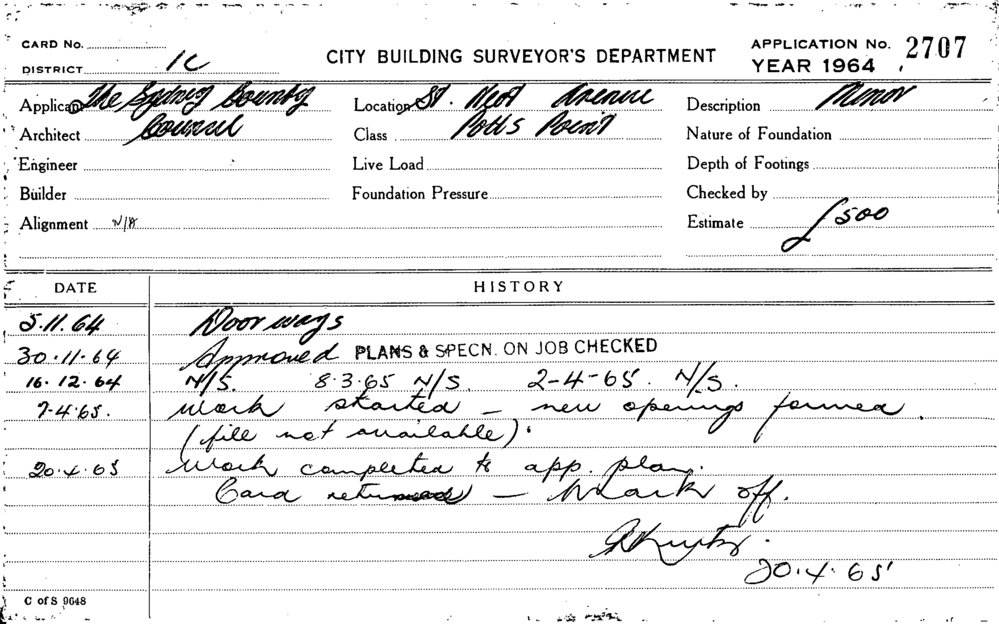 CARD No.
DISTRICT 1C
CITY BUILDING SURVEYOR'S DEPARTMENT
APPLICATION No. 2707
YEAR 1964
Applicant The Sydney County
Location St. Neot Avenue
Description Minor
Architect Council
Class Potts Point
Nature of Foundation
Engineer
Live Load
Depth of Footings
Builder
Foundation Pressure
Checked by
Alignment N/A
Estimate £500
DATE HISTORY
5.11.64 Doorways
30.11.64 Approved PLANS & SPECN. ON JOB CHECKED
16.12.64 N/S. 8.3.65 N/S. 2-4-65. N/S.
7.4.65. Work started – new openings formed.
(file not available).
20.4.65 Work completed to app. plan.
Card returned – Mark off.
20.4.65
C of S 9648